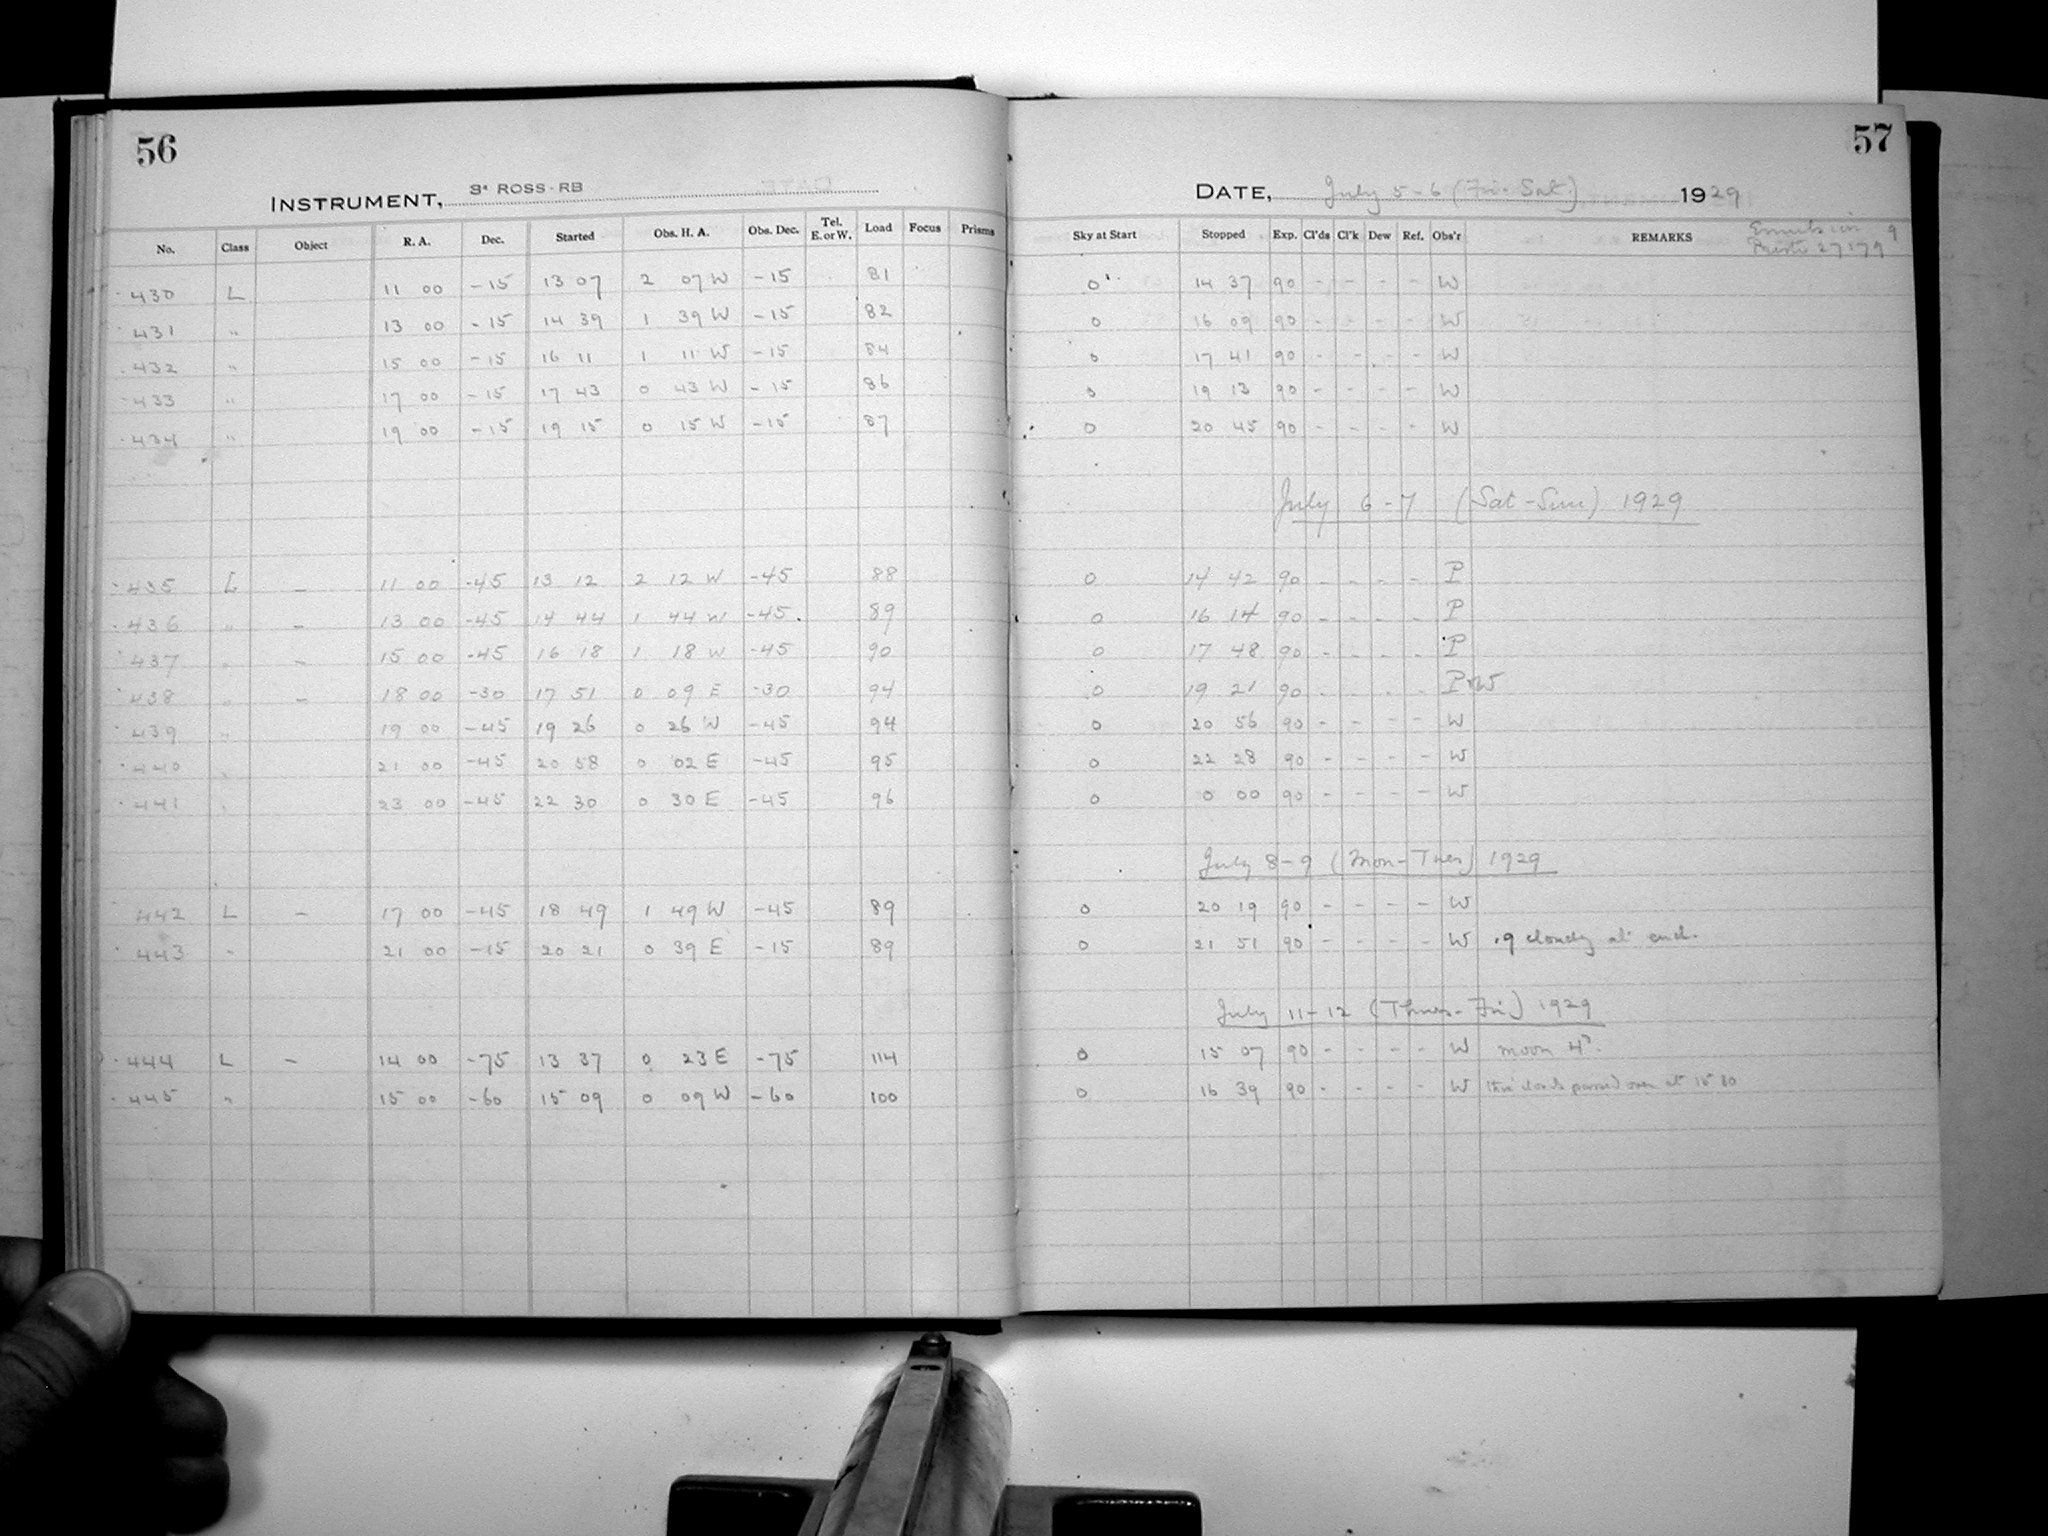 56
57
INSTRUMENT, 3" ROSS-RB
DATE, July 5-6 (Fri-Sat) 1929
No. Class Object R. A. Dec. Started Obs. H. A. Obs. Dec. Tel. E. or W. Load Focus Prisms Sky at Start Stopped Exp. Cl'ds Cl'k Dew Ref. Obs'r REMARKS Emulsion 9
27179
430 L 11 00 -15 13 07 2 07 W -15 81 0 14 37 90 - - - - W
431 " 13 00 -15 14 39 1 39 W -15 82 0 16 09 90 - - - - W
432 " 15 00 -15 16 11 1 11 W -15 84 0 17 41 90 - - - - W
433 " 17 00 -15 17 43 0 43 W -15 86 0 19 13 90 - - - - W
434 " 19 00 -15 19 15 0 15 W -15 87 0 20 45 90 - - - - W
July 6-7 (Sat-Sun) 1929
435 L - 11 00 -45 13 12 2 12 W -45 88 0 14 42 90 - - - - P
436 " - 13 00 -45 14 44 1 44 W -45 89 0 16 14 90 - - - - P
437 " - 15 00 -45 16 18 1 18 W -45 90 0 17 48 90 - - - - P
438 " - 18 00 -30 17 51 0 09 E -30 94 0 19 21 90 - - - - P+W
439 " 19 00 -45 19 26 0 26 W -45 94 0 20 56 90 - - - - W
440 " 21 00 -45 20 58 0 02 E -45 95 0 22 28 90 - - - - W
441 " 23 00 -45 22 30 0 30 E -45 96 0 0 00 90 - - - - W
July 8-9 (Mon-Tues) 1929
442 L - 17 00 -45 18 49 1 49 W -45 89 0 20 19 90 - - - - W
443 " 21 00 -15 20 21 0 39 E -15 89 0 21 51 90 - - - - W .9 cloudy at end.
July 11-12 (Thurs-Fri) 1929
444 L - 14 00 -75 13 37 0 23 E -75 114 0 15 07 90 - - - - W moon 4
445 " 15 00 -60 15 09 0 09 W -60 100 0 16 39 90 - - - - W thin clouds passed over at 15 30